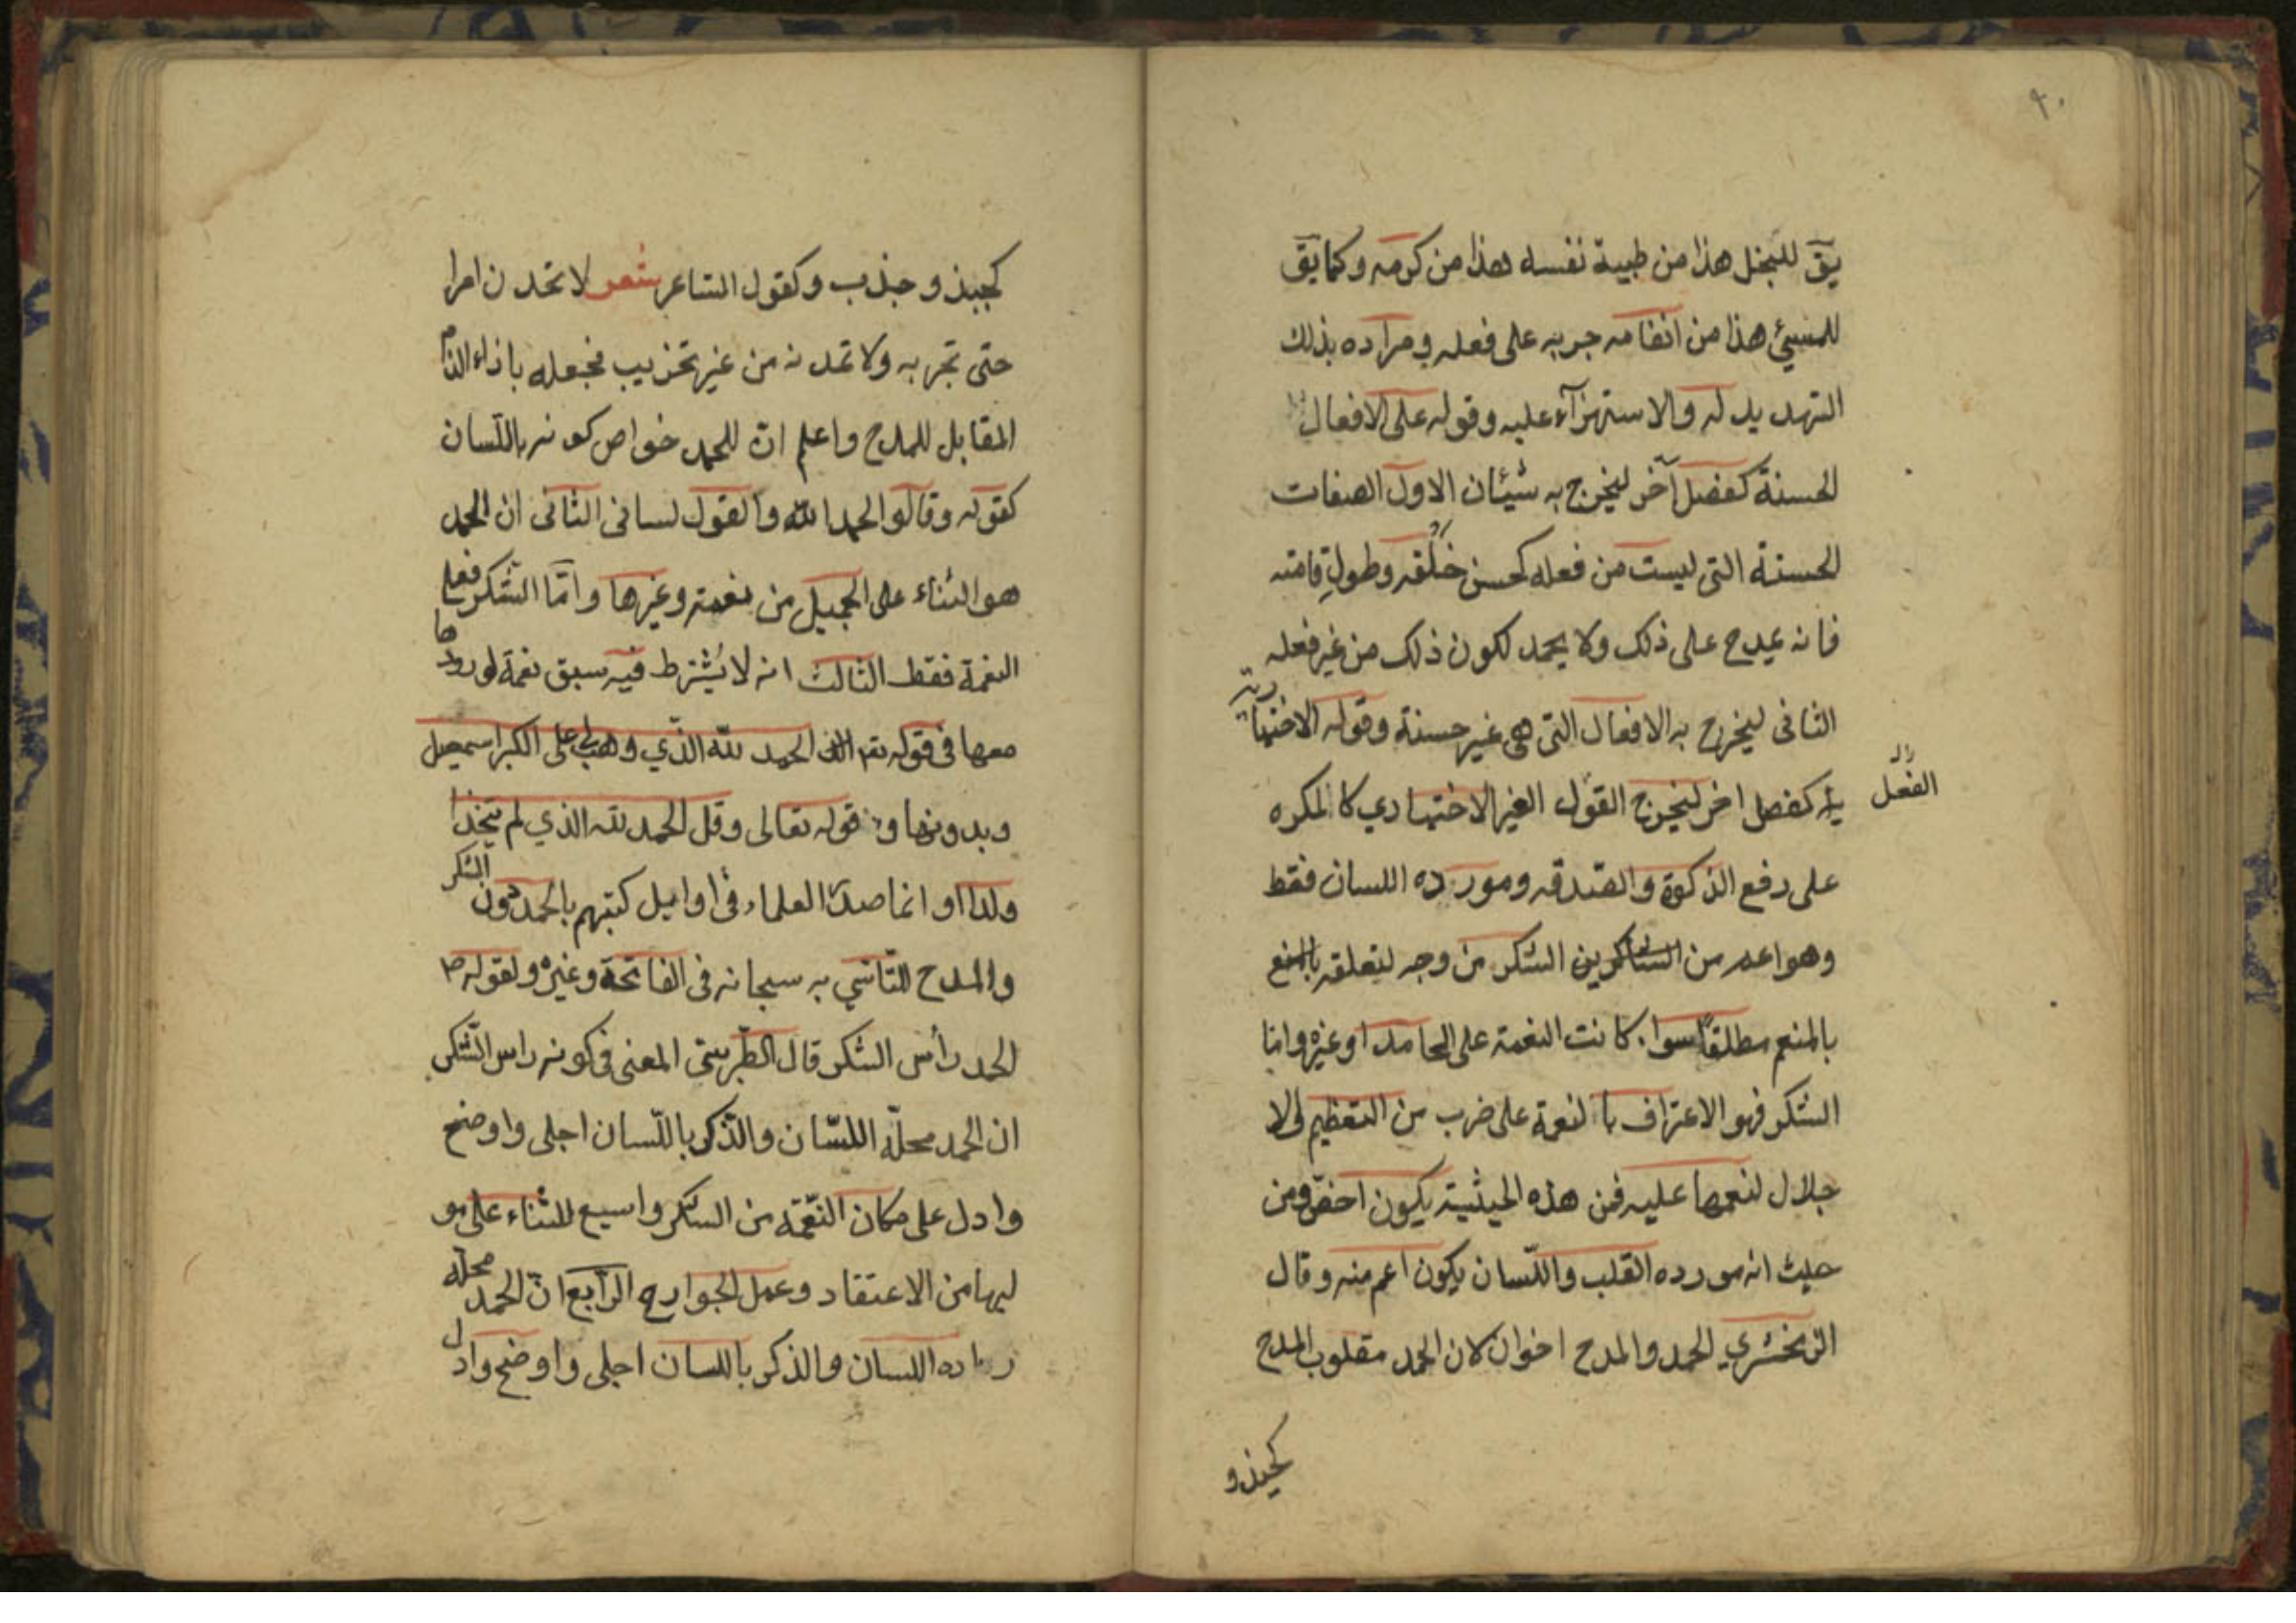 ٩٠
يق للبخل هذا من طيبة نفسه هذا من كرمه وكما يق
للمسيئ هذا من انعامه جربه على فعله ومراده بذلك
التهديد له والاستهزآء عليه وقوله على الافعال
الحسنة كفصل آخر ليخرج به شيئان الاول الصفات
الحسنة التى ليست من فعله كحسن خلقه وطول قامته
فانه يمدح على ذلك ولا يحمد لكون ذلك من غير فعله
الثانى ليخرج به الافعال التى هى غير حسنة وقوله الاختيا رية
ية كفصل اخر ليخرج القول الغير الاختيادي كالمكره
الفعل
على رفع الذكوة والصدقه ومورده اللسان فقط
وهو اعم من الشكر من وجه لتعلقه
بالمنعم مطلقا سواء كانت النعمة على الحامد او غيره واما
الشكر فهو الاعتراف بالنعمة على ضرب من التعظيم
جلال لنعمها عليه فمن هذه الحيثية يكون اخصّ ومن
حيث انه مورده القلب واللّسان يكون اعم منه وقال
الزمخشري الحمد والمدح اخوان لان الحمد مقلوب المدح
كجبذ و
كجبذ و جذب وكقول الشاعر شعر لا تحمدن امرا
حتى تجربه ولا تمدنه من غير تخريب فجعله باذاء الذم
المقابل للمدح واعلم انّ للحمد خواص كونه باللّسان
كقوله وقالوا الحمد لله والقول لسانى الثانى ان الحمد
هو الثناء على الجميل من نعمة وغيرها وامّا الشّكر فعلى
النعمة فقط الثالث انه لا يشترط فيه سبق نعمة لورودها
معها فى قوله تعم الحمد للّه الذّي وهب لي على الكبر اسمعيل
وبدونها و قوله تعالى وقل الحمد لله الذي لم يتخذ
ولدا او انما صدّر العلماء فى اوايل كتبهم بالحمد دون الشكر
والمدح للتّاسّي به سبحانه فى الفاتحة وغيره ولقوله ص
الحمد رأس الشكر قال الطّبرسىّ المعنى فى كونه راس الشّكر
ان الحمد محلّه اللسّان والذّكر باللّسان اجلى واوضح
وادل على مكان النّعمة من الشّكر واسيع للثناء على مو
ليها من الاعتقاد وعمل الجوارح الرّابع انّ الحمد محلّه
اللسان والذكر باللسان اجلى واوضح وادل